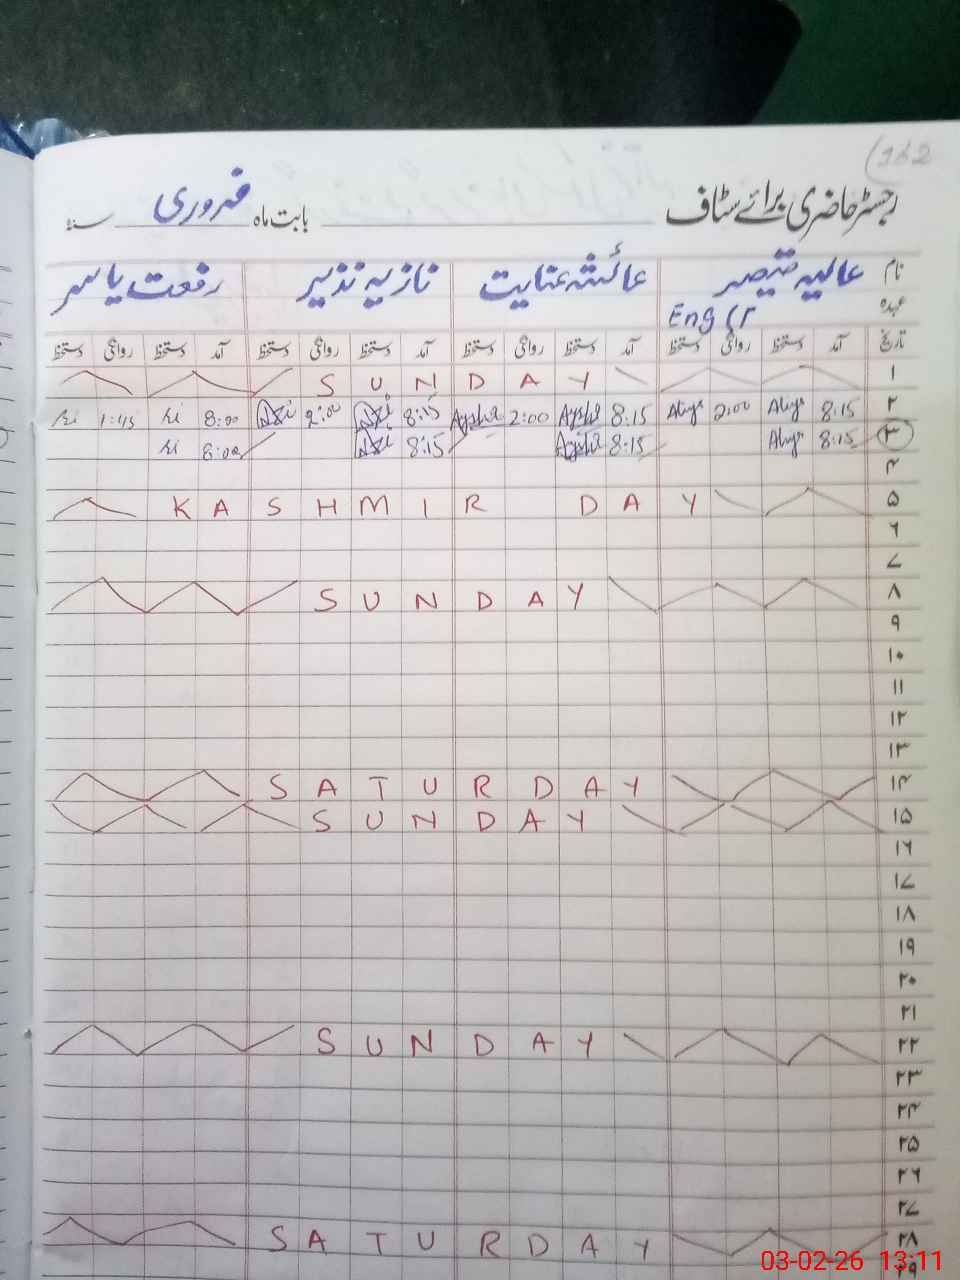 162
رجسٹر حاضری برائے سٹاف بابت ماہ فروری سنہ
نام عالیہ قیصر عائشہ عنایت نازیہ نذیر رفعت یاسر
عہدہ Eng (
تاریخ آمد دستخط روانگی دستخط آمد دستخط روانگی دستخط آمد دستخط روانگی دستخط آمد دستخط روانگی دستخط
۱ SUNDAY
۲ 8:15 Aliya 2:00 Aliya 8:15 Aysha 2:00 Aysha 8:15 2:00 8:00 1:45
۳ 8:15 Aliya 8:15 Aysha 8:15 8:00
۴
۵ KASHMIR DAY
۶
۷
۸ SUNDAY
۹
۱۰
۱۱
۱۲
۱۳
۱۴ SATURDAY
۱۵ SUNDAY
۱۶
۱۷
۱۸
۱۹
۲۰
۲۱
۲۲ SUNDAY
۲۳
۲۴
۲۵
۲۶
۲۷
۲۸ SATURDAY
۲۹
03-02-26 13:11